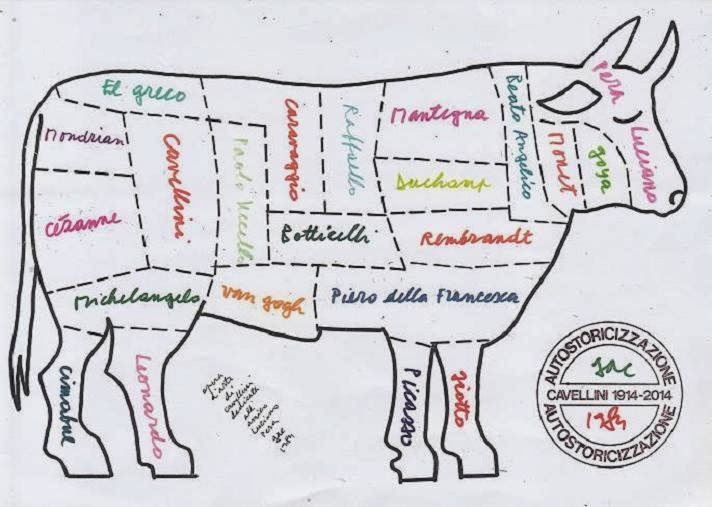 El greco
Mondrian
Cavellini
Paolo Uccello
Caravaggio
Raffaello
Mantegna
Beato Angelico
Monet
goya
PERA
Luciano
Duchamp
Cézanne
Botticelli
Rembrandt
Michelangelo
van gogh
Piero della Francesca
Cimabue
Leonardo
Picasso
giotto
opera
di
Cavellini
dedicata
all'
amico
Luciano
Pera
gac
AUTOSTORICIZZAZIONE
gac
CAVELLINI 1914-2014
1984
AUTOSTORICIZZAZIONE